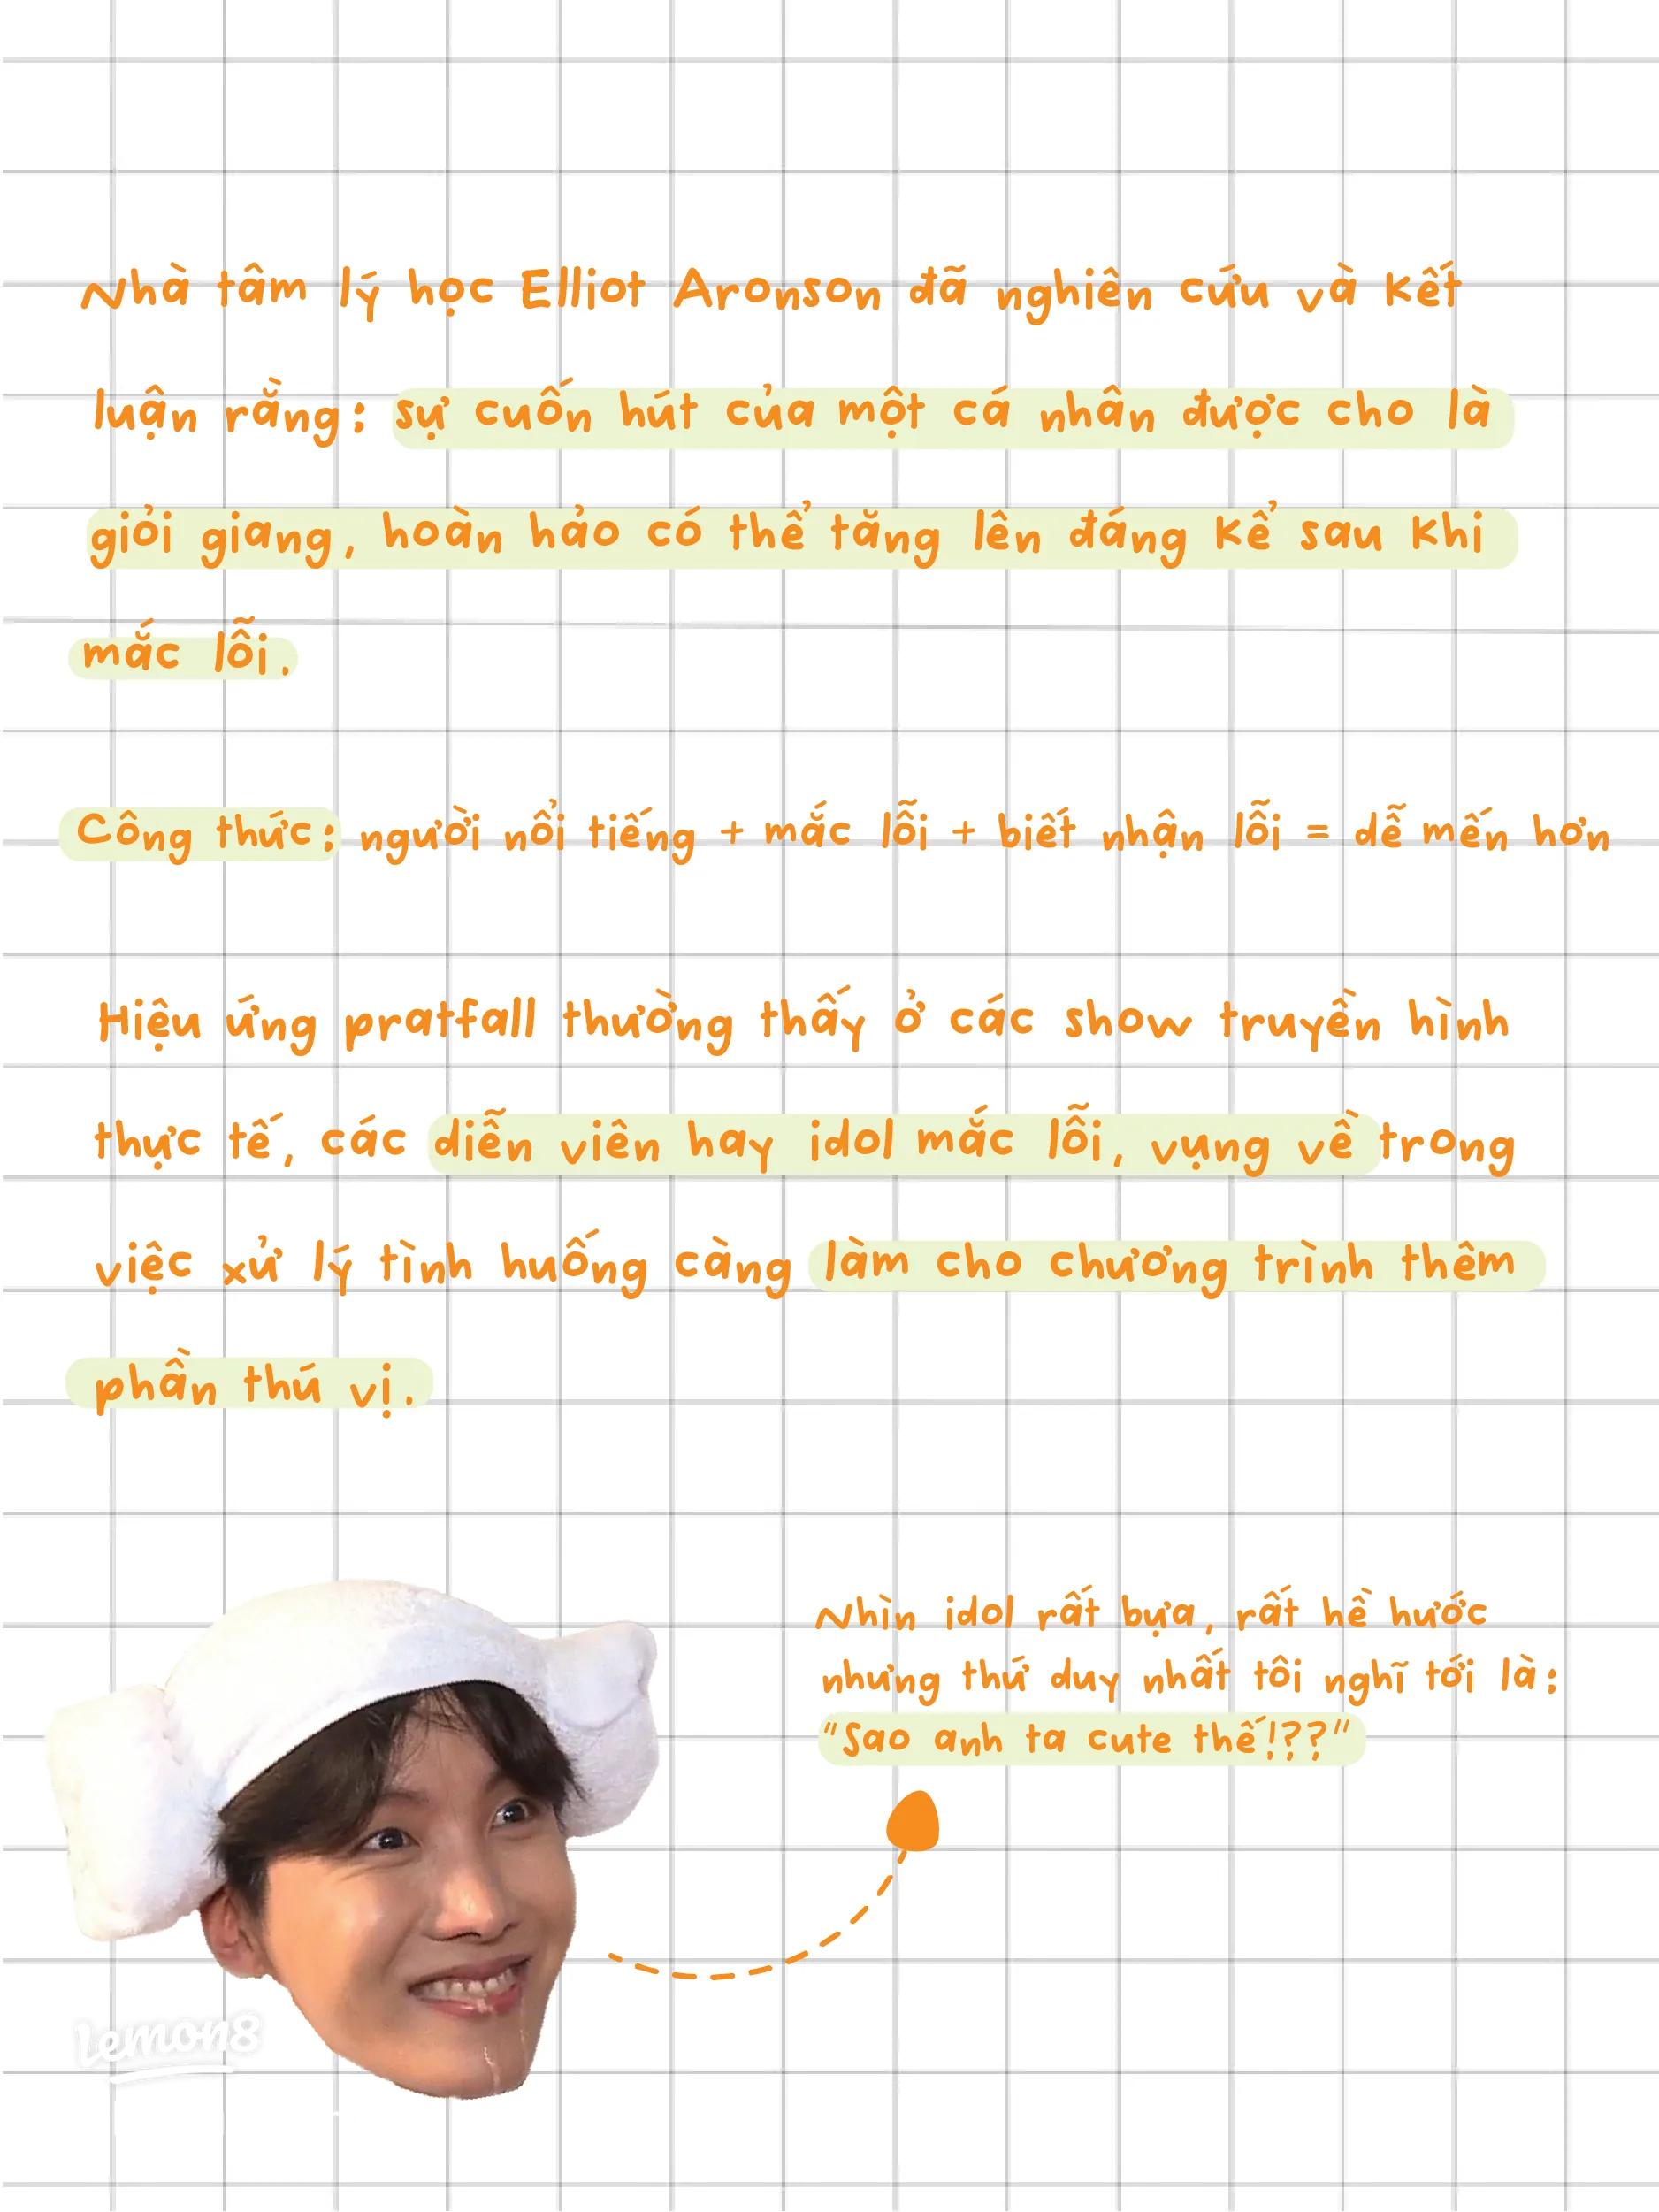 Nhà tâm lý học Elliot Aronson đã nghiên cứu và kết
luận rằng: sự cuốn hút của một cá nhân được cho là
giỏi giang, hoàn hảo có thể tăng lên đáng kể sau khi
mắc lỗi.
Công thức: người nổi tiếng + mắc lỗi + biết nhận lỗi = dễ mến hơn
Hiệu ứng pratfall thường thấy ở các show truyền hình
thực tế, các diễn viên hay idol mắc lỗi, vụng về trong
việc xử lý tình huống càng làm cho chương trình thêm
phần thú vị.
Nhìn idol rất bựa, rất hề hước
nhưng thứ duy nhất tôi nghĩ tới là:
"Sao anh ta cute thế!??"
Lemon8